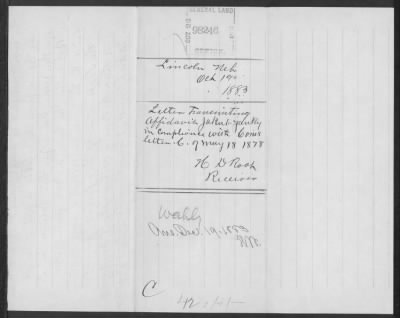 GENERAL LAND
98246
OFFICE.
Lincoln Neb
Oct 19
1883
Letter Transmitting
Affidavit Jakub
in Compliance with Coms
letter C. of May 18 1878
Receiver
Ans. Dec. 19-1883
C